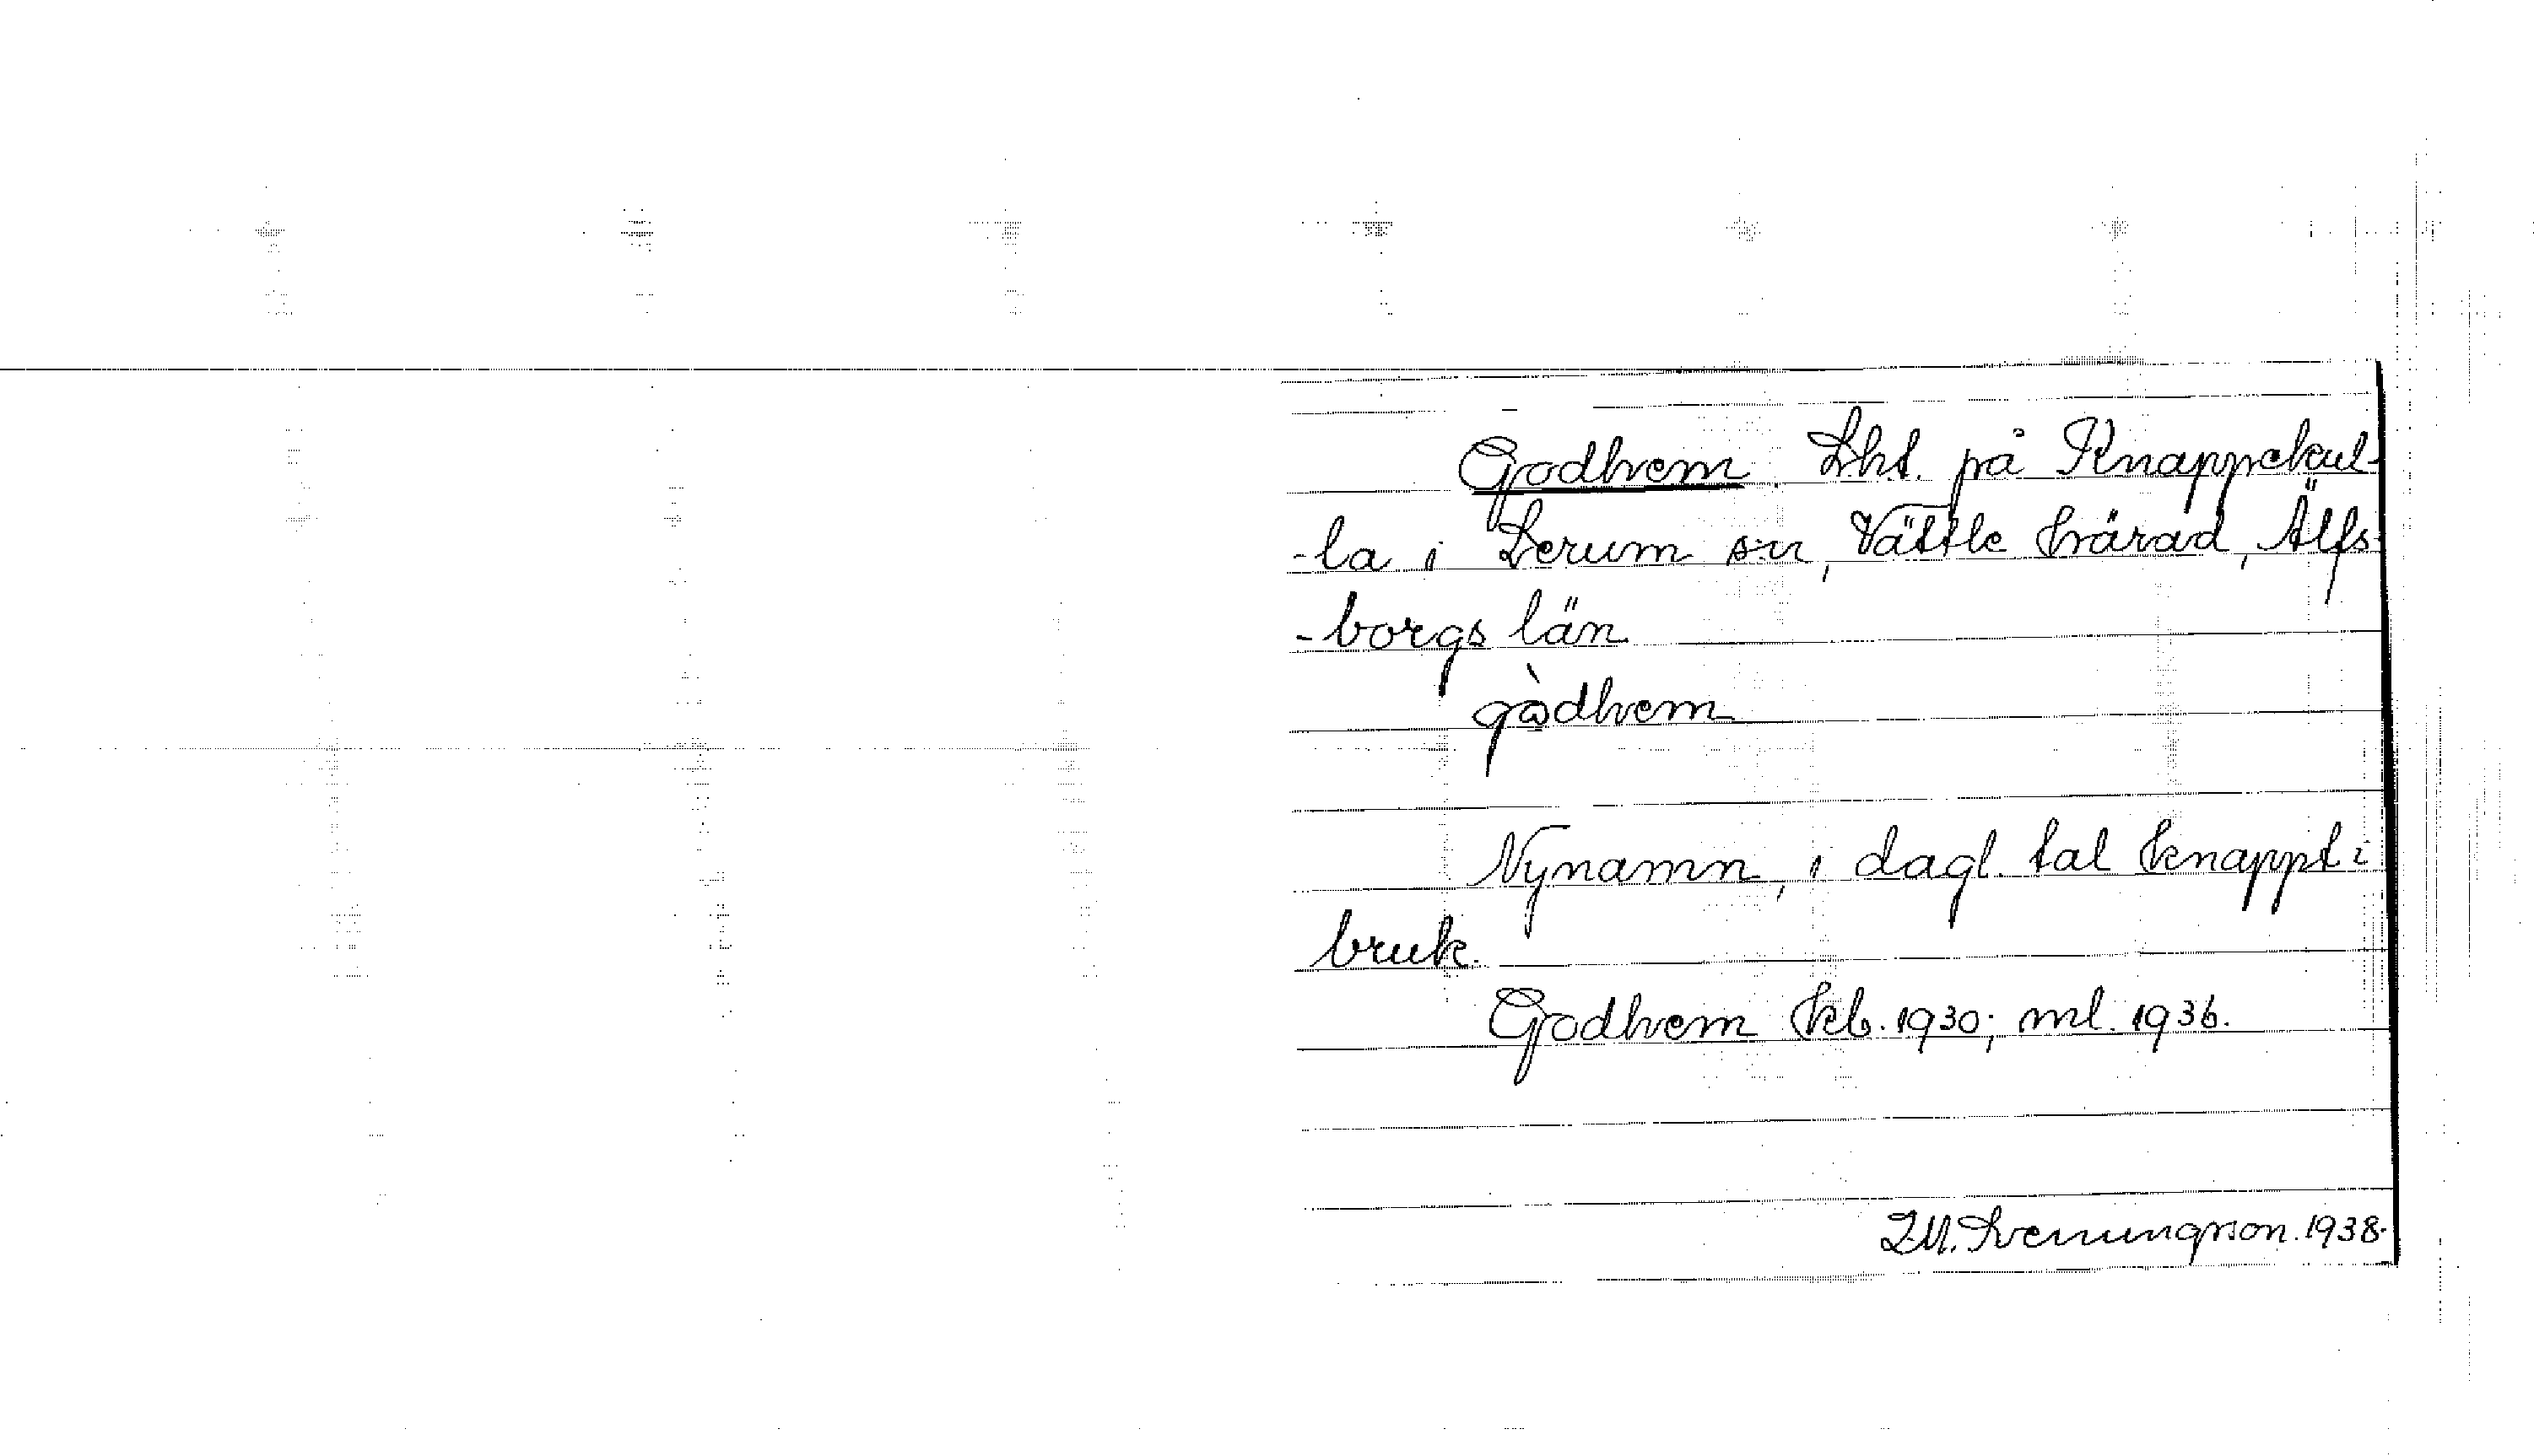 Godhem. Lht. på Knappekul-
-la i Lerum sn, Vättle härad, Älfs-
-borgs län
gòdhem
Nynamn, i dagl. tal knappt i
bruk.
Godhem kb. 1930; ml. 1936.
Svenungsson. 1938.